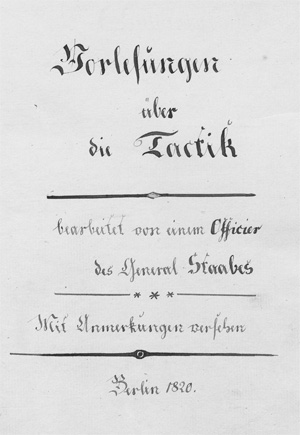 Vorlesungen
über
die Tactik
bearbeitet von einem Officier
des General Staabes
Mit Anmerkungen versehen
Berlin 1820.